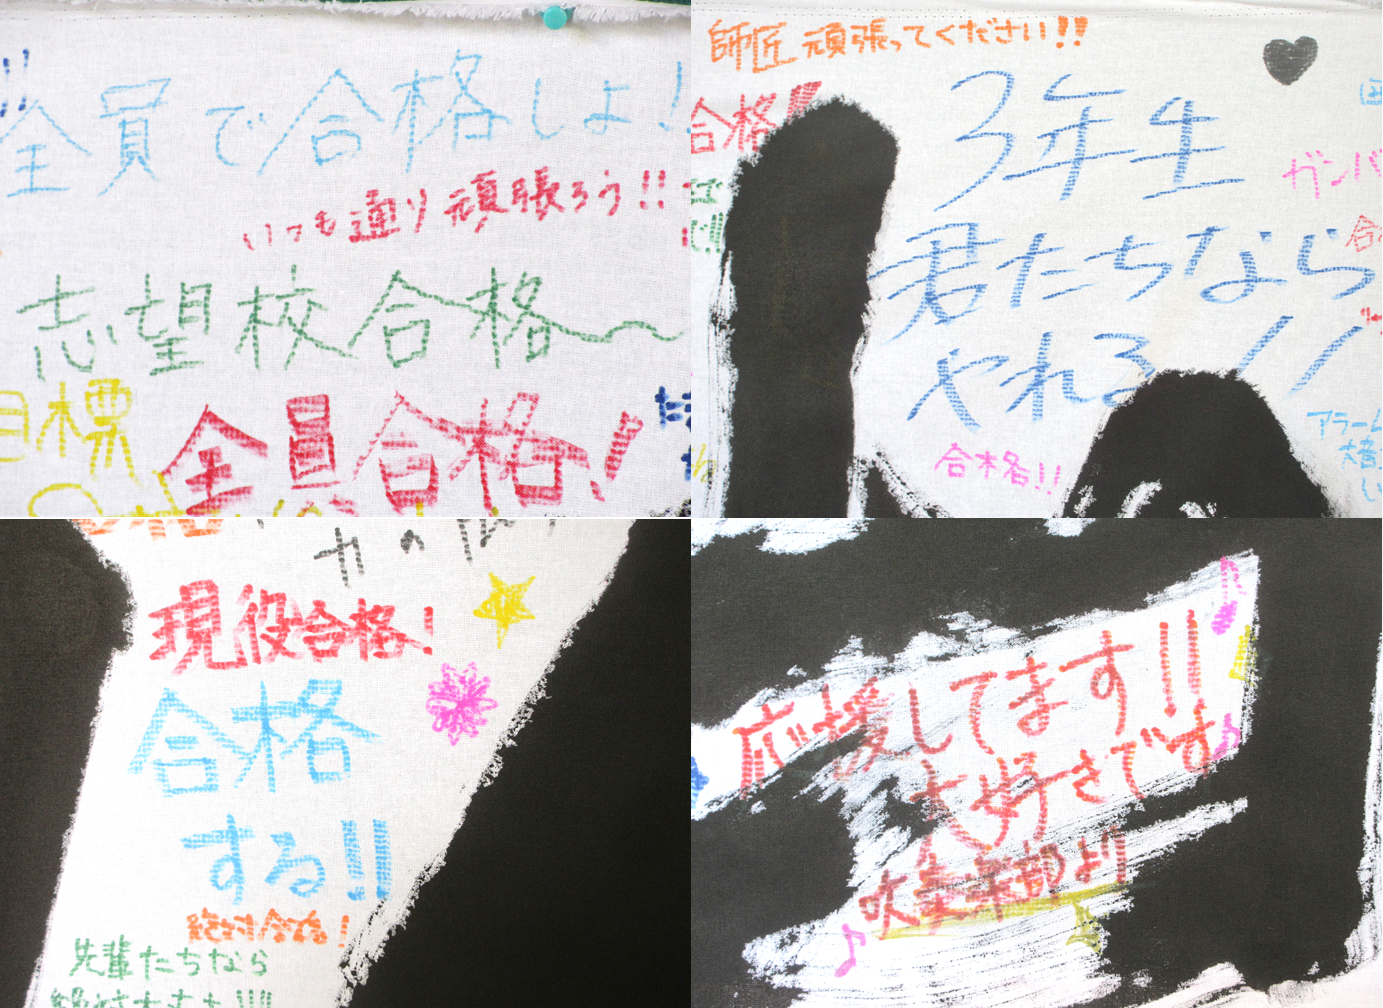 全員で合格しよ!
いつも通り頑張ろう!!
志望校合格〜
目標
全員合格!
師匠頑張ってください!!
合格!!
3年生
ガンバ
君たちなら
やれる!!
合格!!
アラーム
現役合格!
合格
する!!
絶対合格!
先輩たちなら
応援してます!!
大好きです
吹奏楽部より